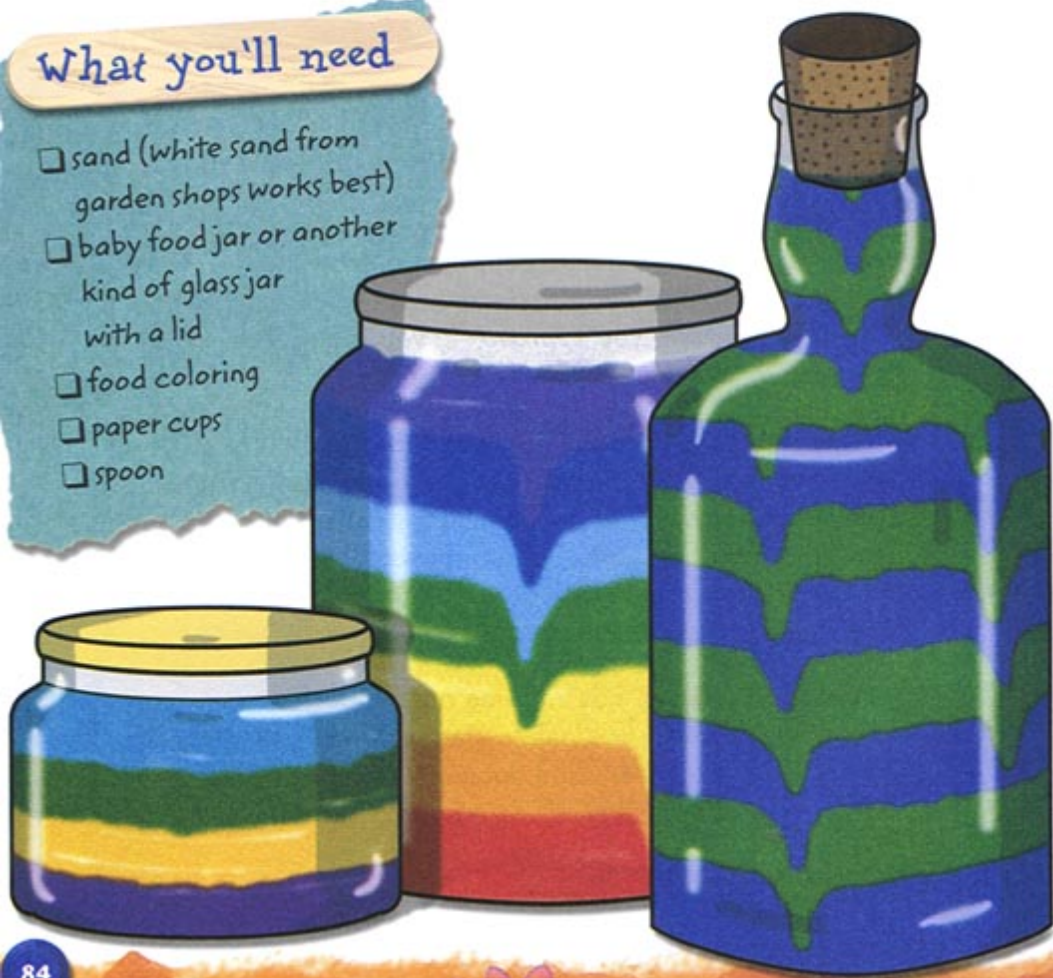 What you'll need
❑ sand (white sand from
garden shops works best)
❑ baby food jar or another
kind of glass jar
with a lid
❑ food coloring
❑ paper cups
❑ spoon
84